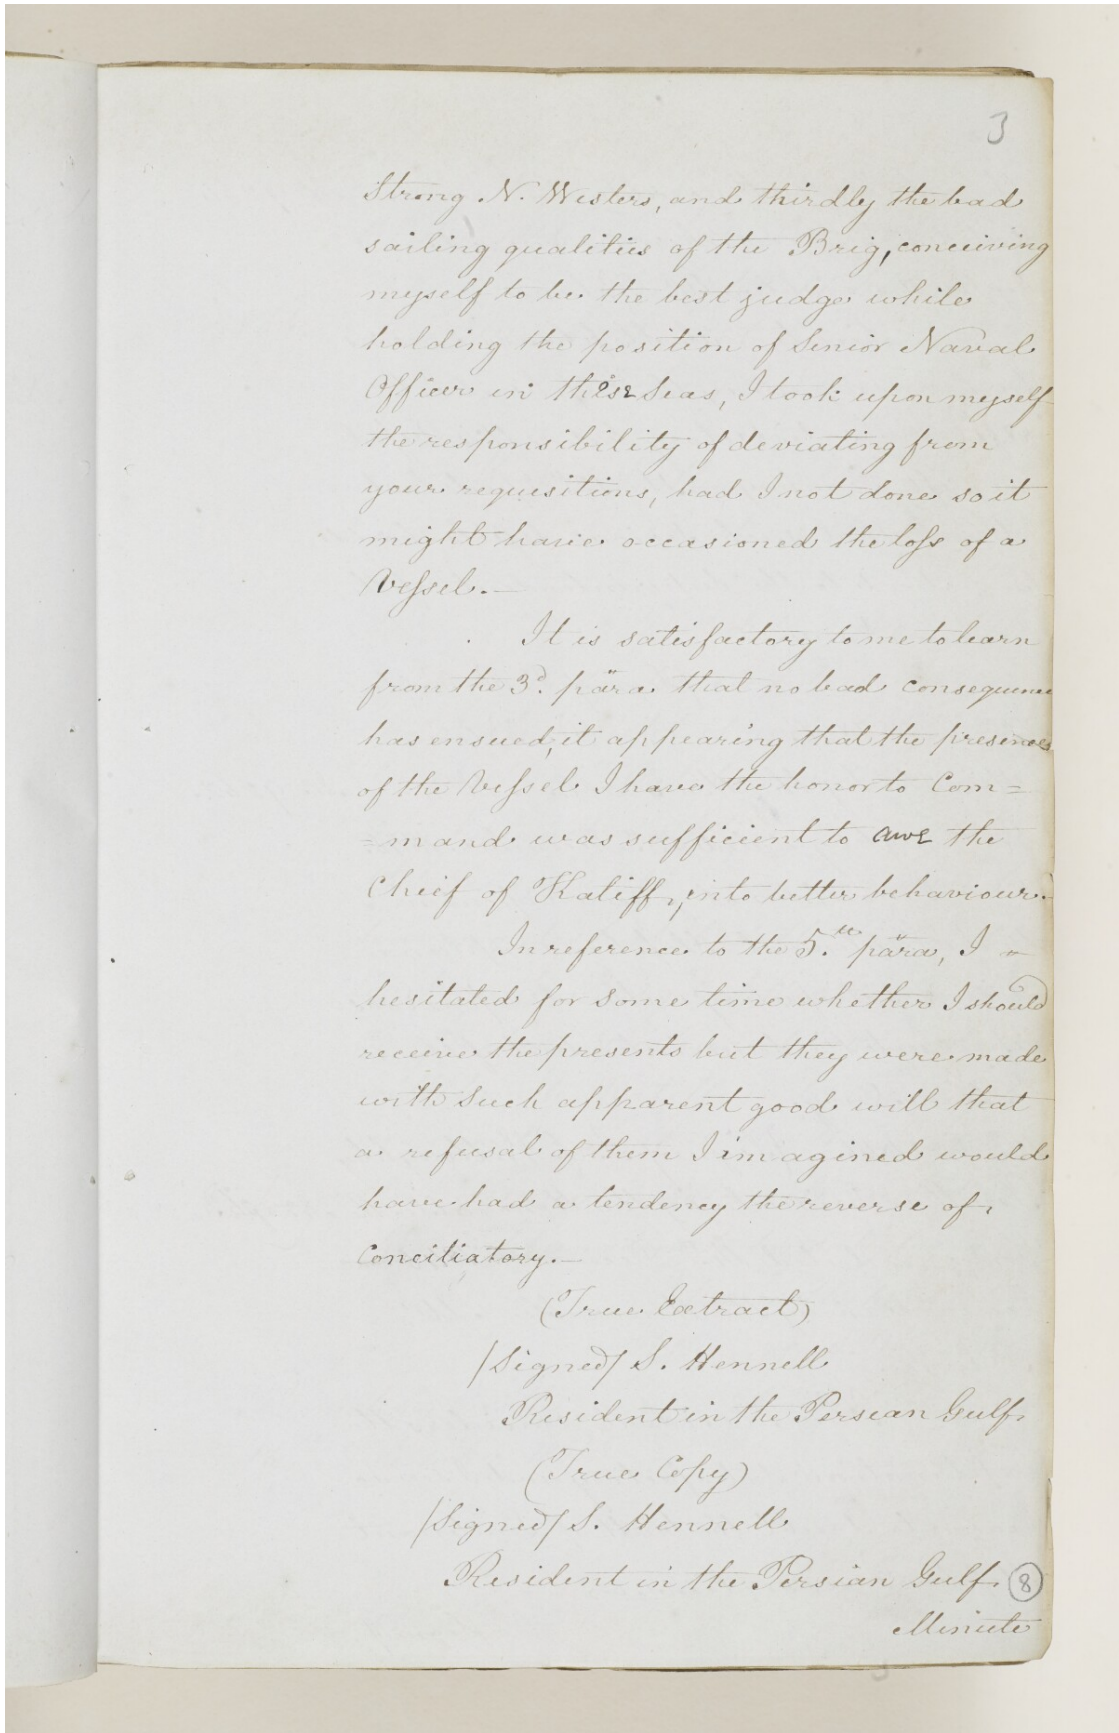 3
Strong N. Westers, and thirdly the bad
sailing qualities of the Brig, conceiving
myself to be the best judge while
holding the position of Senior Naval
Officer in these Seas, I took upon myself
the responsibility of deviating from
your requisitions, had I not done so it
might have occasioned the loss of a
Vessel.—
It is satisfactory to me to learn
from the 3d. para that no bad consequence
has ensued, it appearing that the presence
of the Vessel I have the honor to Com=
=mand was sufficient to awe the
Chief of Katiff, into better behaviour.
In reference to the 5th. para, I
hesitated for some time whether I should
receive the presents but they were made
with such apparent good will that
a refusal of them I imagined would
have had a tendency the reverse of
Conciliatory.—
(True Extract)
/Signed/ S. Hennell
Resident in the Persian Gulf
(True Copy)
/Signed/ S. Hennell
Resident in the Persian Gulf 8
Minute